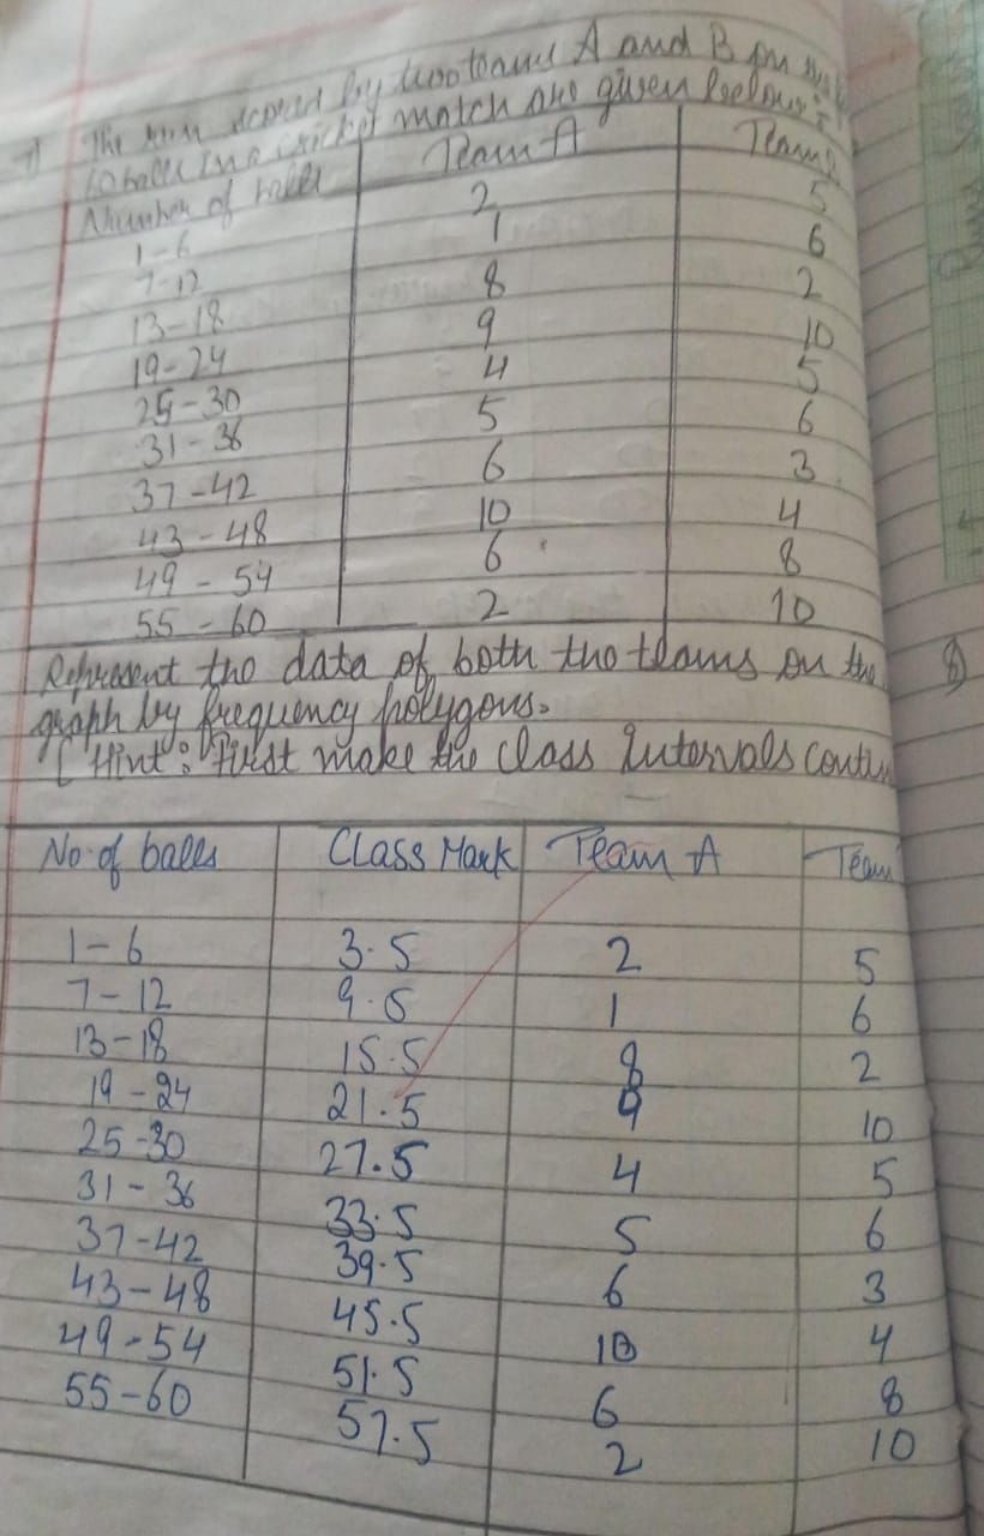 7) The runs scored by two teams A and B on the
60 balls in a cricket match are given below :
Number of balls Team A Team
1-6 2 5
7-12 1 6
13-18 8 2
19-24 9 10
25-30 4 5
31-36 5 6
37-42 6 3
43-48 10 4
49-54 6 8
55-60 2 10
Represent the data of both the teams on the
graph by frequency polygons.
[Hint: First make the class Intervals contin
8)
No. of balls Class Mark Team A Team
1-6 3.5 2 5
7-12 9.5 1 6
13-18 15.5 8 2
19-24 21.5 9 10
25-30 27.5 4 5
31-36 33.5 5 6
37-42 39.5 6 3
43-48 45.5 10 4
49-54 51.5 6 8
55-60 57.5 2 10